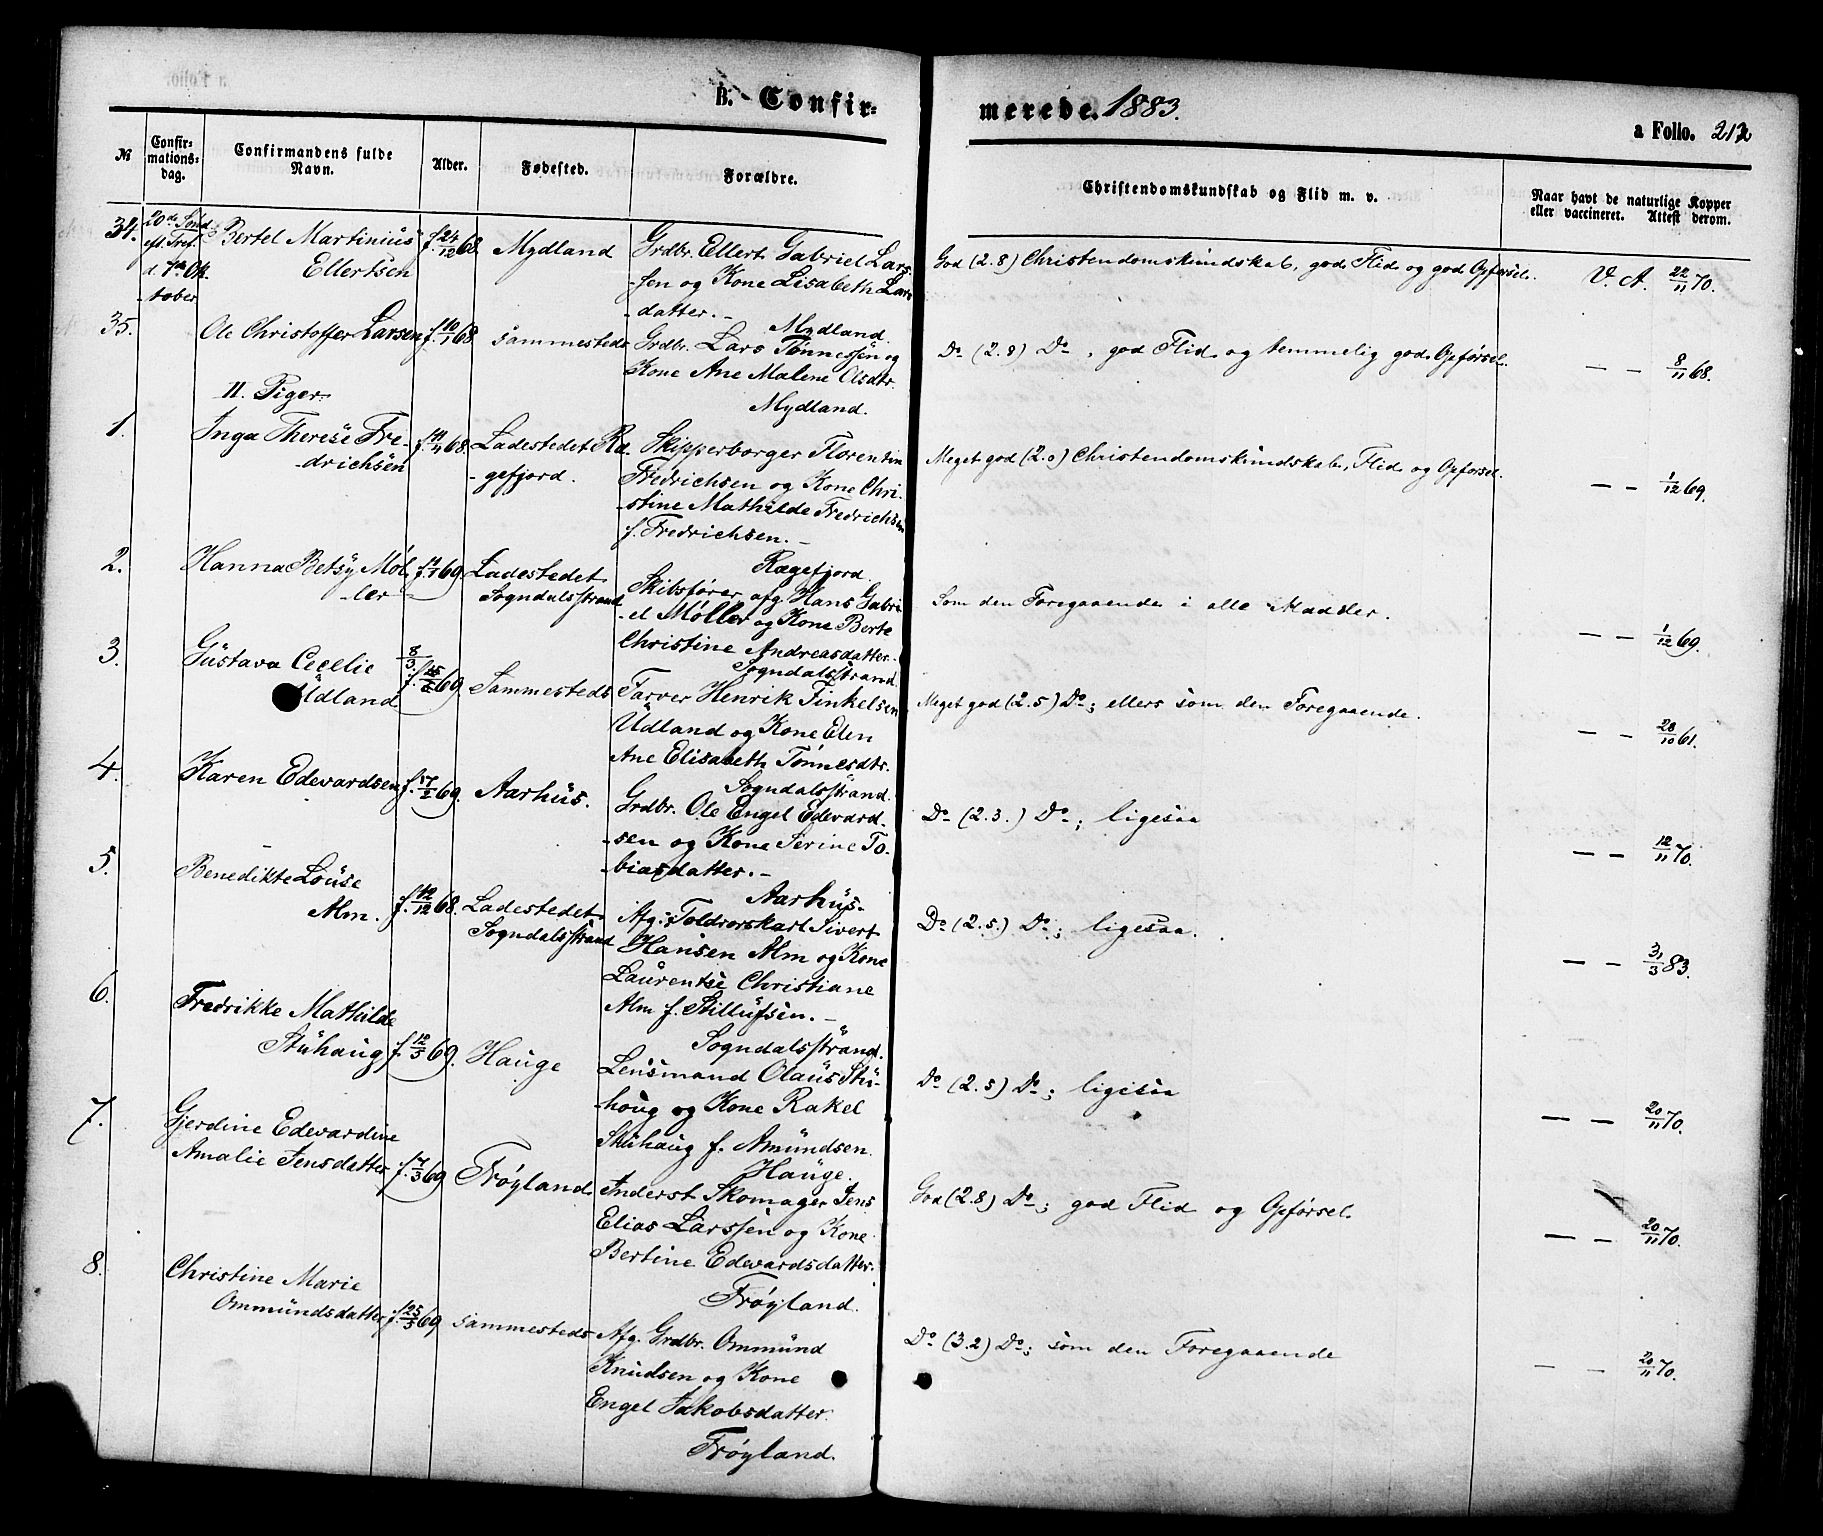 B. Confir-
merede. 1883.
a Folio. 212
№
Confir-
mations-
dag.
Confirmandens fulde
Navn.
Alder.
Fødested.
Forældre.
Christendomskundskab og Flid m. v.
Naar havt de naturlige Kopper
eller vaccineret. Attest derom.
34.
20de Sönd.
eft. Tref.
d. 7de Ok-
tober
Bertel Martinius
Ellertsen
f. 24/12 68
Mydland
Grdbr. Ellert Gabriel Lars-
sen og Kone Lisabeth Lars-
datter. -
Mydland.
God (2.8) Christendomskundskab, god Flid og god Opførsel.
V. A. 22/11 70.
35.
Ole Christoffer Larsen
f. 10/1 68
sammesteds
Grdbr. Lars Tønnessen og
Kone Ane Malene Olsdtr.
Mydland.
Do (2.8) Do, god Flid og temmelig god Opførsel.
— — 8/11 68.
II. Piger.
1.
Inga Therese Fre-
drichsen
68.
Ladestedet Ræ-
gefjord.
Skipperborger Florentin
Fredrichsen og Kone Chri-
stine Mathilde Fredrichsen
f. Fredrichsen. -
Rægefjord.
Meget god (2.0) Christendomskundskab, Flid og Opførsel.
— — 1/12 69.
2.
Hanna Betsy Møl-
ler
69.
Ladestedet
Sogndalsstrand
Skibsfører afg. Hans Gabri-
el Møller og Kone Berte
Christine Andreasdatter.
Sogndalsstrand.
Som den Foregaaende i alle Maader.
— — 1/12 69.
3.
Gustava Cecelie
Udland
8/3
69.
Sammesteds
Farver Henrik Finkelsen
Udland og Kone Elen
Ane Elisabeth Tønnesdtr.
Sogndalsstrand.
Meget god (2.5) Do; ellers som den Foregaaende.
— — 28/10 61.
4.
Karen Edevardsen
f. 17/2 69.
Aarhus.
Grdbr. Ole Engel Edevard-
sen og Kone Serine To-
biasdatter. -
Aarhus.
Do (2.3.) Do; ligesaa
— — 12/11 70.
5.
Benedikte Louse
Alm.
f. 12/12 68.
Ladestedet
Sogndalsstrand
Afg. Toldrorskarl Sivert
Hansen Alm og Kone
Laurentse Christiane
Alm f. Stillufsen. -
Sogndalsstrand.
Do (2.5.) Do; ligesaa.
— — 31/3 83.
6.
Fredrikke Mathilde
Stuhaug
f. 12/5 69.
Hauge
Lensmand Olaus Stu-
houg og Kone Rakel
Stuhaug f. Amundsen.
Hauge.
Do (2.5) Do; ligesaa
— — 20/11 70.
7.
Gjerdine Edevardine
Amalie Jensdatter
f. 7/3 69
Frøyland
Inderst Skomager Jens
Elias Larssen og Kone
Bertine Edevardsdatter.
Frøyland.
God (2.8) Do; god Flid og Opførsel.
— — 20/11 70.
8.
Christine Marie
Ommundsdatter
f. 25/5 69
sammesteds
Afg. Grdbr. Ommund
Knudsen og Kone
Engel Jakobsdatter.
Frøyland.
Do (3.2) Do; som den Foregaaende
— — 20/11 70.